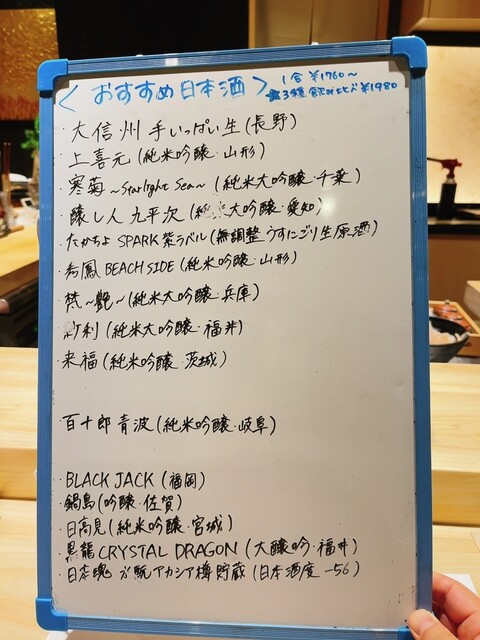 〈おすすめ日本酒〉
1合 ¥1760〜
★3種飲み比べ ¥1980
・大信州 手いっぱい生(長野)
・上喜元(純米吟醸・山形)
・寒菊〜Starlight Sea〜(純米大吟醸・千葉)
・醸し人九平次(純米大吟醸・愛知)
・たかちよ SPARK 紫ラベル(無調整 うすにごり生原酒)
・秀鳳 BEACH SIDE(純米吟醸・山形)
・梵〜艶〜(純米大吟醸・兵庫)
・紗利(純米大吟醸・福井)
・来福(純米吟醸・茨城)
・百十郎 青波(純米吟醸・岐阜)
・BLACK JACK(福岡)
・鍋島(吟醸・佐賀)
・日高見(純米吟醸・宮城)
・黒龍 CRYSTAL DRAGON(大醸吟・福井)
アカシア樽貯蔵(日本酒度 -56)